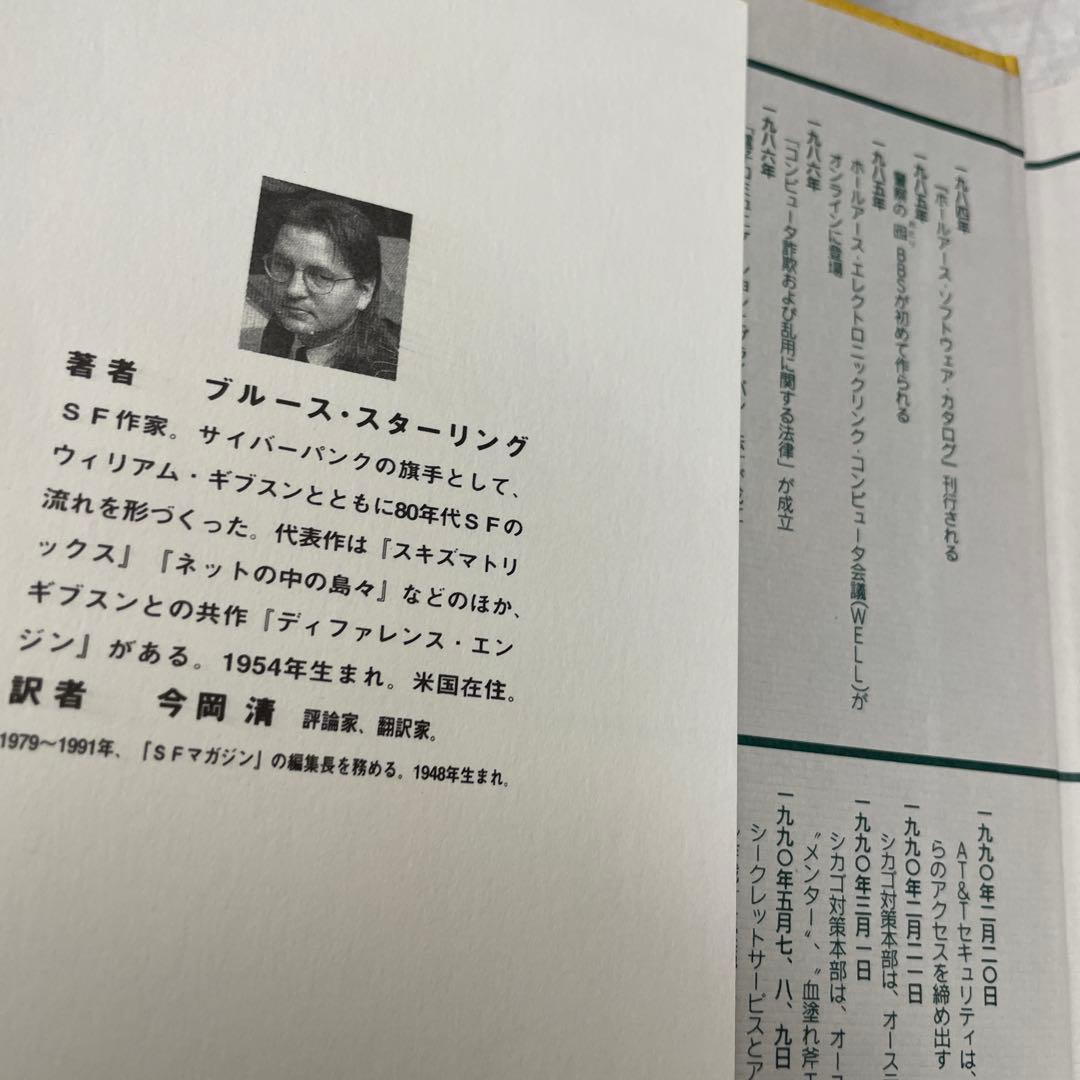 著者 ブルース・スターリング
SF作家。サイバーパンクの旗手として、
ウィリアム・ギブスンとともに80年代SFの
流れを形づくった。代表作は『スキズマトリ
ックス』『ネットの中の島々』などのほか、
ギブスンとの共作『ディファレンス・エン
ジン』がある。1954年生まれ。米国在住。
訳者 今岡清 評論家、翻訳家。
1979〜1991年、『SFマガジン』の編集長を務める。1948年生まれ。
一九八四年
『ホールアース・ソフトウェア・カタログ』刊行される
一九八五年
警察の囮BBSが初めて作られる
一九八五年
ホールアース・エレクトロニックリンク・コンピュータ会議(WELL)が
オンラインに登場
一九八六年
「コンピュータ詐欺および乱用に関する法律」が成立
一九八六年
一九九〇年二月二〇日
AT&Tセキュリティは、
らのアクセスを締め出す
一九九〇年二月二一日
シカゴ対策本部は、オース
一九九〇年三月一日
シカゴ対策本部は、オー
〝メンター〟、〝血塗れ斧
一九九〇年五月七、八、九日
シークレットサービスとア